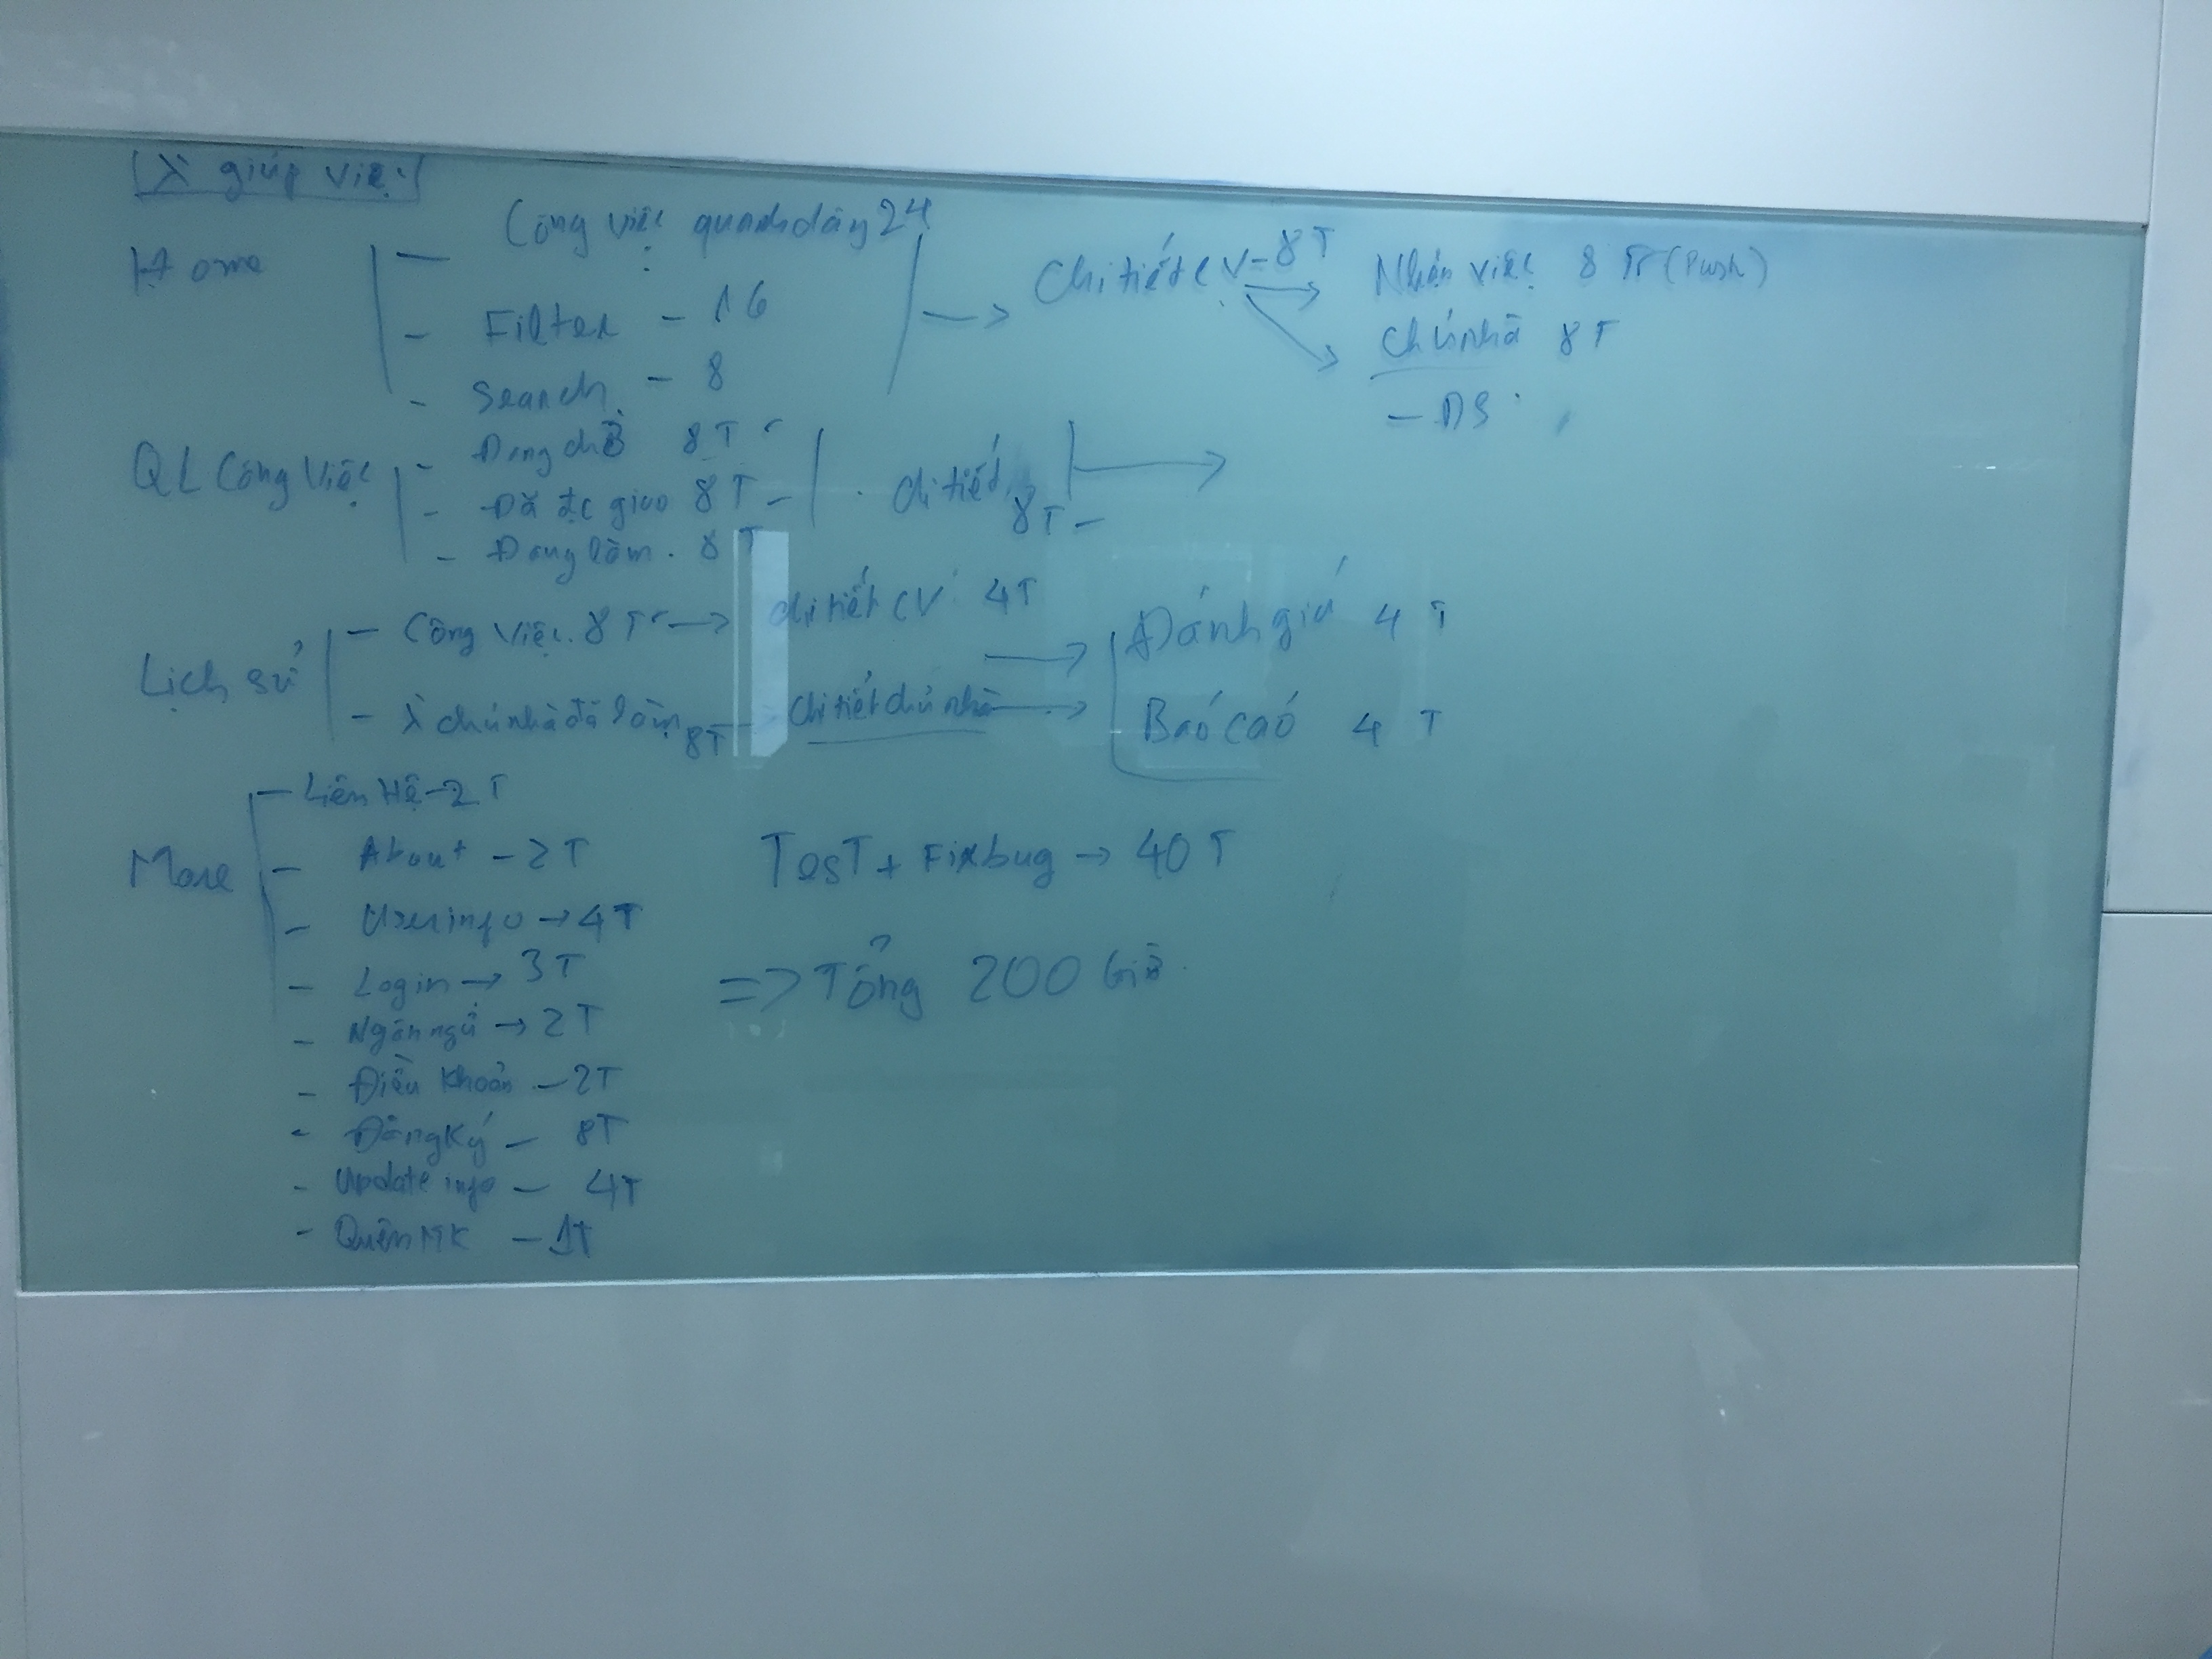 λ giúp việc
Home
- Công việc quanh đây 24
- Filter - 16
- Search - 8
Chi tiết CV = 8T
Nhận việc 8 Tr (Push)
Chủ nhà 8T
- DS
QL Công Việc
- Đang chờ 8T
- Đã đc giao 8T -
- Đang làm. 8T
Chi tiết 8T -
Lịch sử
- Công việc. 8T → chi tiết CV 4T
- λ chủ nhà đã làm 8T → chi tiết chủ nhà
Đánh giá 4T
Báo cáo 4T
More
- Liên Hệ - 2T
- About - 2T
- User info → 4T
- Login → 3T
- Ngôn ngữ → 2T
- Điều Khoản - 2T
- Đăng Ký - 8T
- Update info - 4T
- Quên MK - 1T
Test + Fixbug → 40T
=> Tổng 200 Giờ